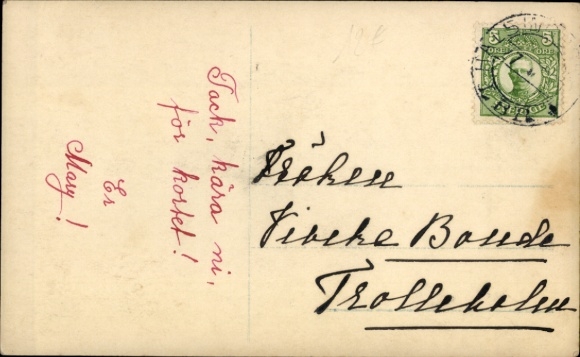 Tack, kära ni,
för kortet!
Er
Mary!
Fröken
Vivcke Bonde
Trolleholm
5
5